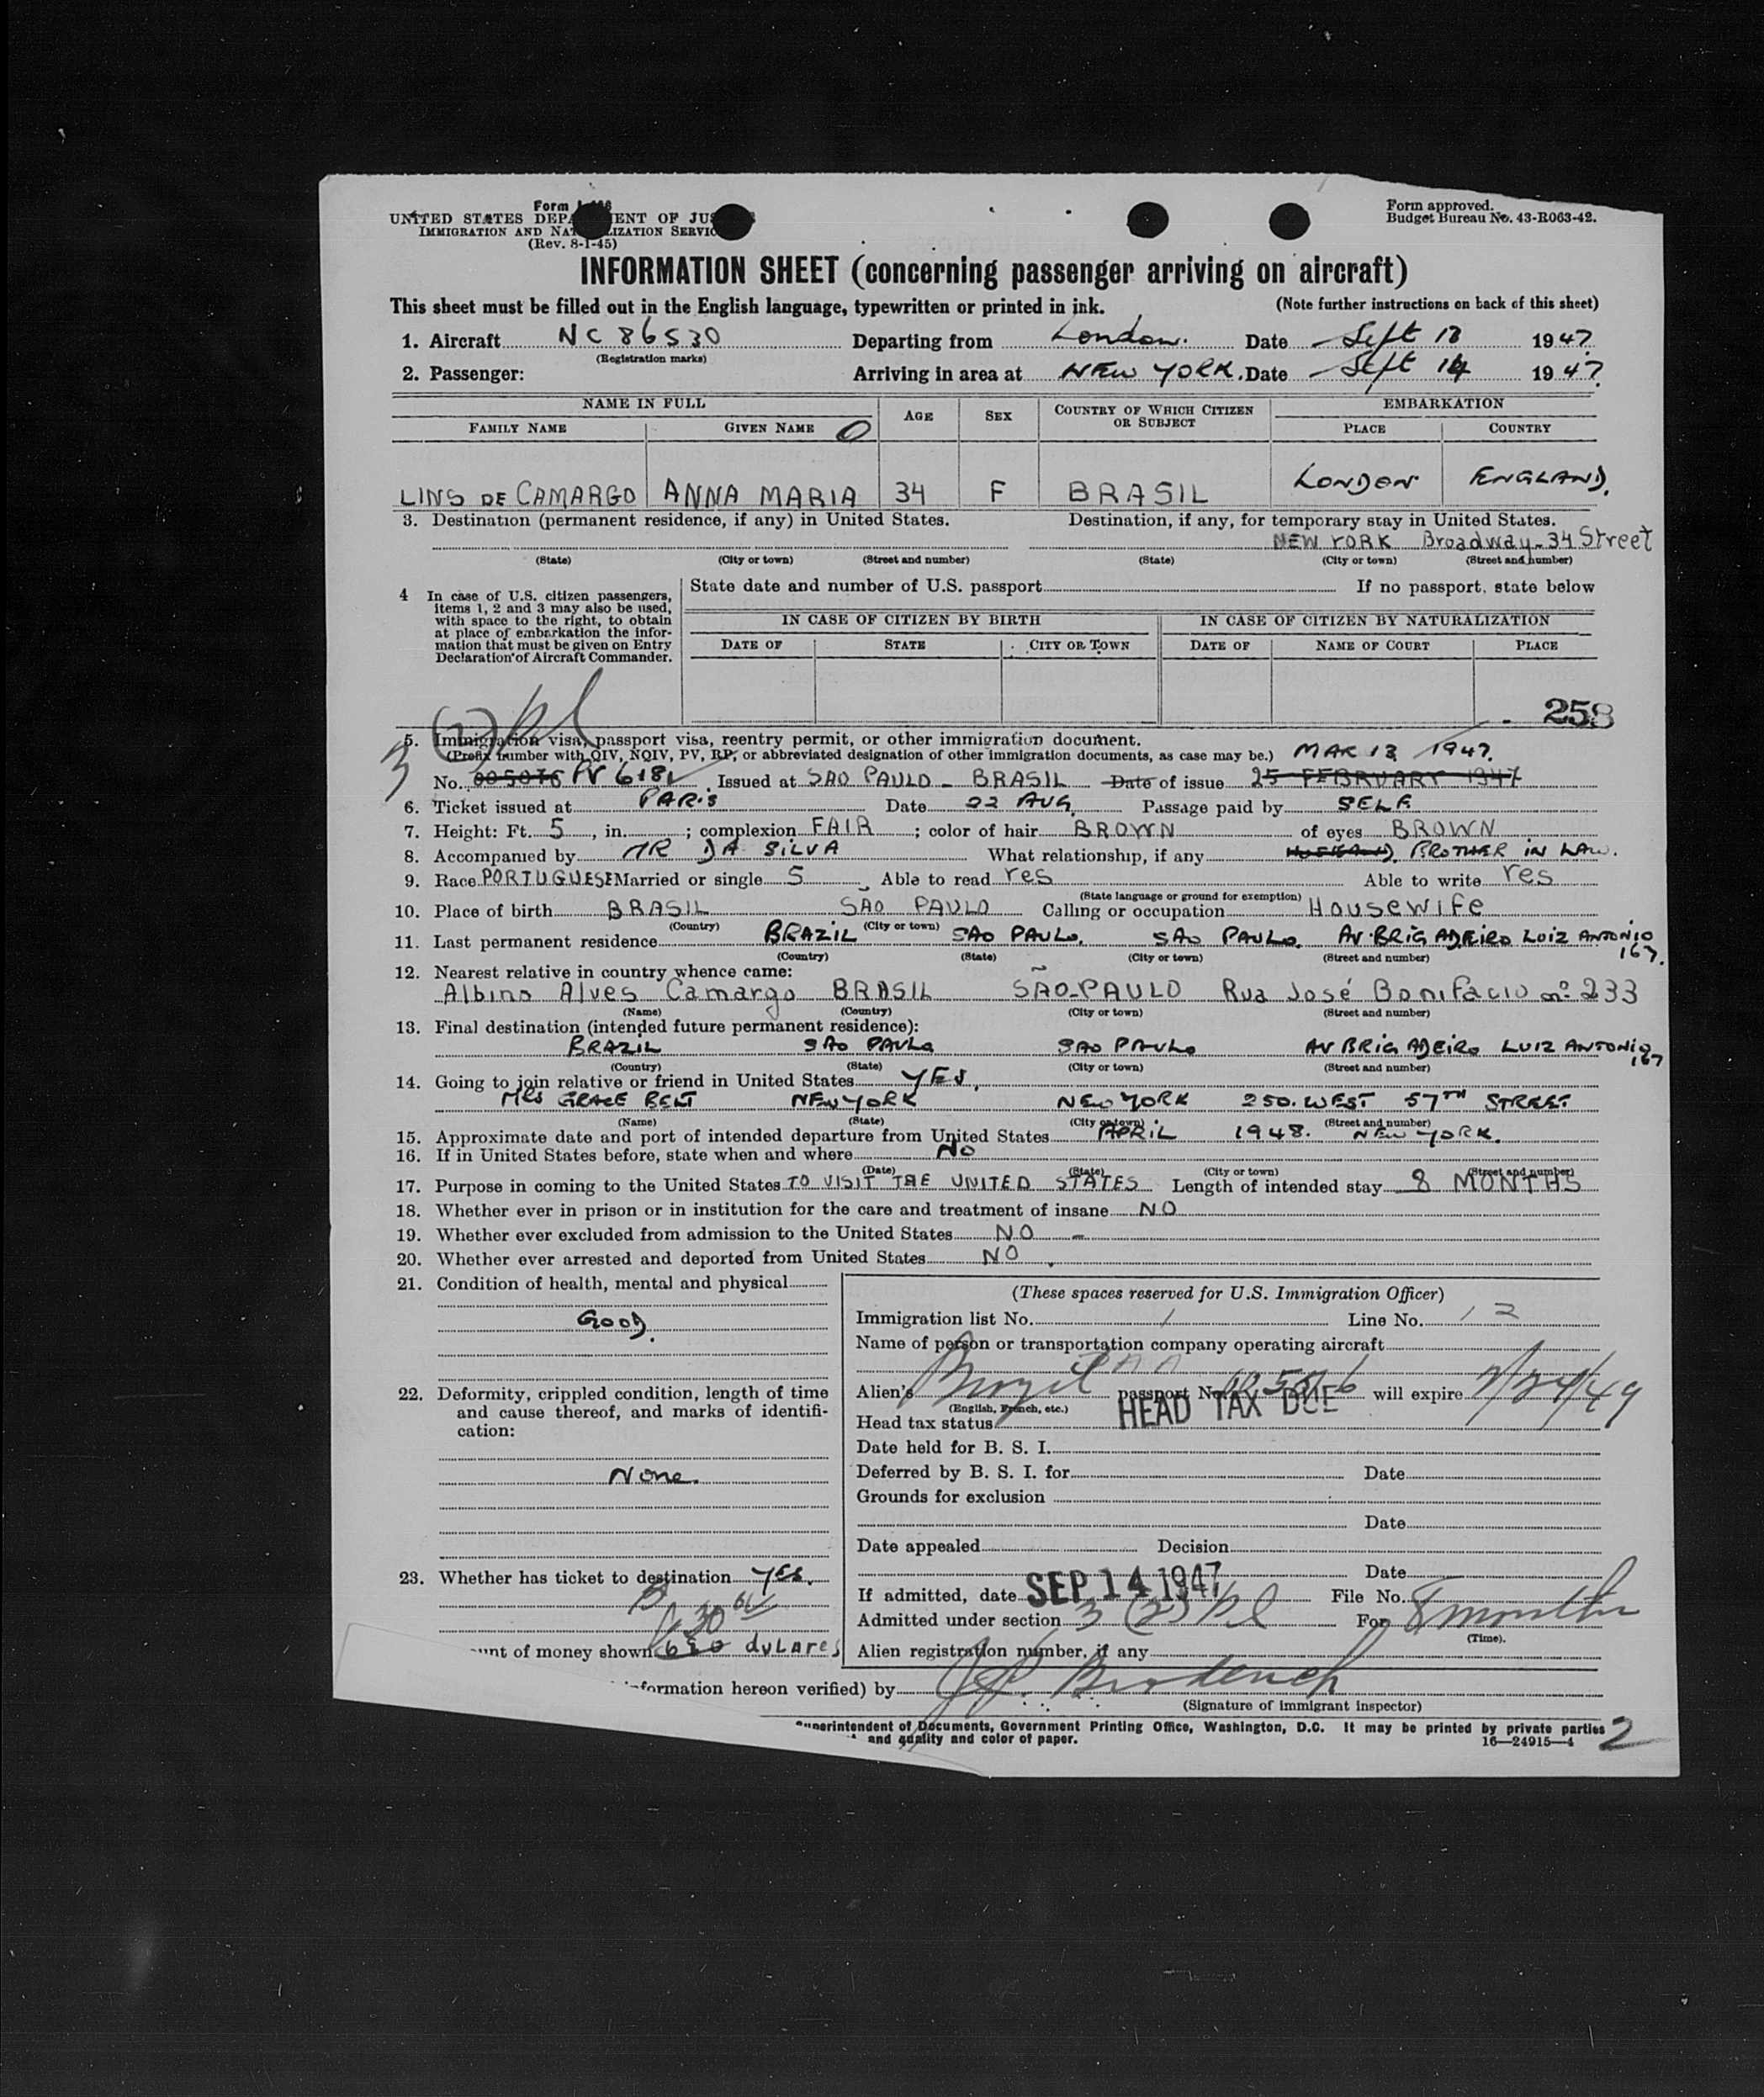 Form
UNITED STATES DEPARTMENT OF JUSTICE
IMMIGRATION AND NATURALIZATION SERVICE
(Rev. 8-1-45)
Form approved.
Budget Bureau No. 43-R063-42.
INFORMATION SHEET (concerning passenger arriving on aircraft)
This sheet must be filled out in the English language, typewritten or printed in ink. (Note further instructions on back of this sheet)
1. Aircraft NC 86530 Departing from London. Date Sept 13 1947
(Registration marks)
2. Passenger: Arriving in area at NEW YORK. Date Sept 14 1947
NAME IN FULL AGE SEX COUNTRY OF WHICH CITIZEN OR SUBJECT EMBARKATION
FAMILY NAME GIVEN NAME PLACE COUNTRY
LINS DE CAMARGO ANNA MARIA 34 F BRASIL LONDON ENGLAND.
3. Destination (permanent residence, if any) in United States. Destination, if any, for temporary stay in United States.
NEW YORK Broadway-34 Street
(State) (City or town) (Street and number) (State) (City or town) (Street and number)
4 In case of U.S. citizen passengers, items 1, 2 and 3 may also be used, with space to the right, to obtain at place of embarkation the information that must be given on Entry Declaration of Aircraft Commander.
State date and number of U.S. passport If no passport, state below
IN CASE OF CITIZEN BY BIRTH IN CASE OF CITIZEN BY NATURALIZATION
DATE OF STATE CITY OR TOWN DATE OF NAME OF COURT PLACE
258
5. Immigration visa, passport visa, reentry permit, or other immigration document.
(Prefix number with QIV, NQIV, PV, RP, or abbreviated designation of other immigration documents, as case may be.) MAR 13 1947.
No. 005076 PV 6181 Issued at SAO PAULO - BRASIL Date of issue 25 FEBRUARY 1947
6. Ticket issued at PARIS Date 22 AUG. Passage paid by SELF.
7. Height: Ft. 5, in. ; complexion FAIR ; color of hair BROWN of eyes BROWN
8. Accompanied by MR DA SILVA What relationship, if any HUSBAND. BROTHER IN LAW.
9. Race PORTUGUESE Married or single S Able to read Yes Able to write Yes
(State language or ground for exemption)
10. Place of birth BRASIL SAO PAULO Calling or occupation Housewife
(Country) (City or town)
11. Last permanent residence BRAZIL SAO PAULO. SAO PAULO. AV. BRIGADEIRO LUIZ ANTONIO 167.
(Country) (State) (City or town) (Street and number)
12. Nearest relative in country whence came:
Albino Alves Camargo BRASIL SÃO-PAULO Rua José Bonifacio nº 233
(Name) (Country) (City or town) (Street and number)
13. Final destination (intended future permanent residence):
BRAZIL SAO PAULO SAO PAULO AV BRIGADEIRO LUIZ ANTONIO 167
(Country) (State) (City or town) (Street and number)
14. Going to join relative or friend in United States YES.
MRS GRACE BENT NEW YORK NEW YORK 250. WEST 57TH STREET
(Name) (State) (City or town) (Street and number)
15. Approximate date and port of intended departure from United States APRIL 1948. NEW YORK.
16. If in United States before, state when and where No
(Date) (State) (City or town) (Street and number)
17. Purpose in coming to the United States TO VISIT THE UNITED STATES Length of intended stay 8 MONTHS
18. Whether ever in prison or in institution for the care and treatment of insane NO
19. Whether ever excluded from admission to the United States NO -
20. Whether ever arrested and deported from United States NO.
21. Condition of health, mental and physical
Good.
22. Deformity, crippled condition, length of time and cause thereof, and marks of identification:
None.
23. Whether has ticket to destination Yes.
unt of money shown 650 dulares
(These spaces reserved for U.S. Immigration Officer)
Immigration list No. 1 Line No. 12
Name of person or transportation company operating aircraft
PAA
Alien's Brazil passport No. will expire 2/24/49
(English, French, etc.)
Head tax status HEAD TAX DUE
Date held for B. S. I.
Deferred by B. S. I. for Date
Grounds for exclusion
Date
Date appealed Decision
Date
If admitted, date SEP 14 1947 File No.
Admitted under section 3 (2) For 8 months
(Time).
Alien registration number, if any
formation hereon verified) by
(Signature of immigrant inspector)
Superintendent of Documents, Government Printing Office, Washington, D.C. It may be printed by private parties
and quality and color of paper. 16—24915—4
2